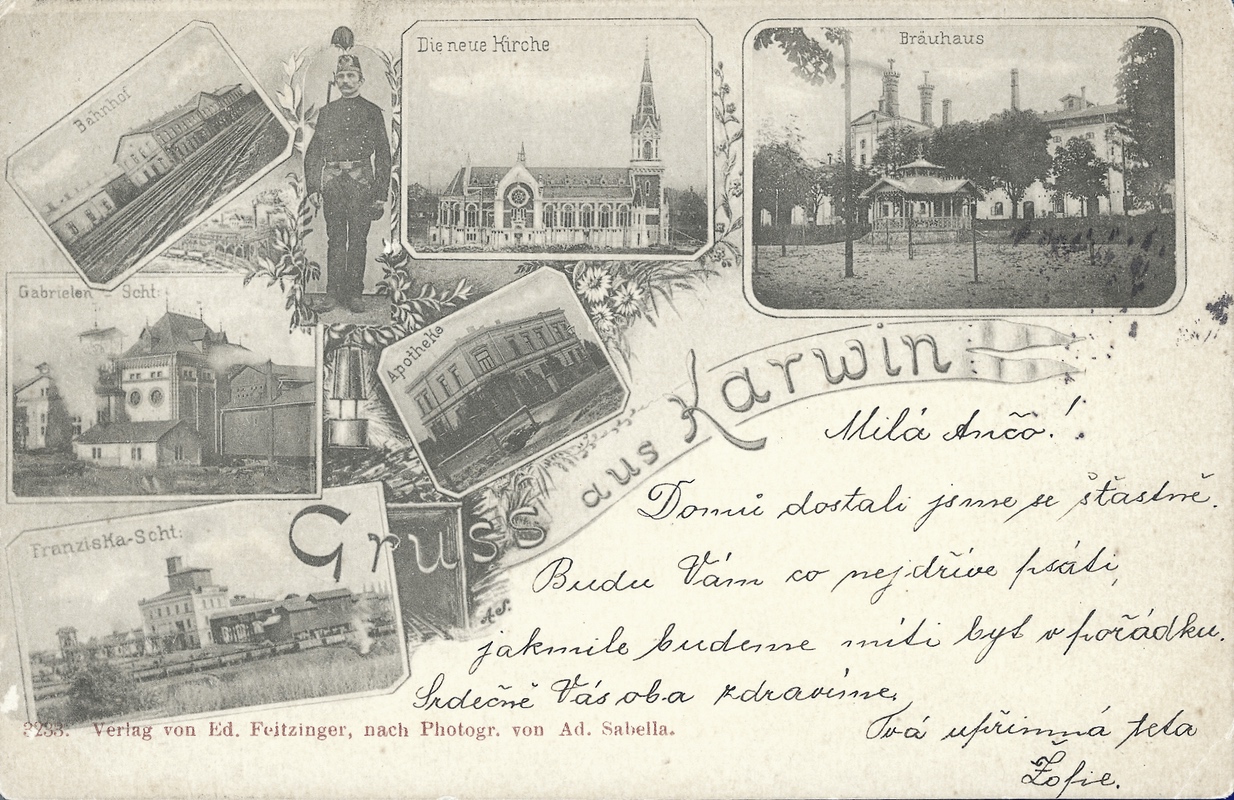 Bahnhof
Die neue Kirche
Bräuhaus
Gabrielen - Scht:
Apotheke
Franziska-Scht:
Gruss aus Karwin
A.S.
Milá Ančo!
Domů dostali jsme se šťastně.
Budu Vám co nejdříve psáti,
jakmile budeme míti byt v pořádku.
Srdečně Vás oba zdravíme.
Tvá upřímná teta
Žofie.
3233. Verlag von Ed. Feitzinger, nach Photogr. von Ad. Sabella.